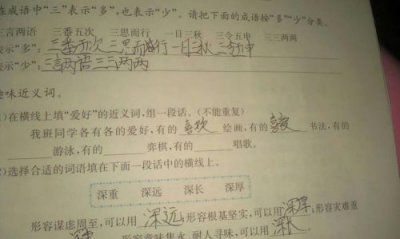 在成语中“三”表示“多”,也表示“少”。请把下面的成语按“多”“少”分类。
三言两语 三番五次 三思而行 一日三秋 三令五申 三三两两
表示“多”:三番五次 三思而行 一日三秋 三令五申
表示“少”:三言两语 三三两两
趣味近义词。
)在横线上填“爱好”的近义词,组一段话。(不能重复)
我班同学各有各的爱好,有的 喜欢 绘画,有的 喜爱 书法,有的
游泳,有的 弈棋,有的 唱歌。
)选择合适的词语填在下面一段话中的横线上。
深重 深远 深长 深厚
形容谋虑周至,可以用 深远 ;形容根基坚实,可以用 深厚 ;形容灾难重
形容意味隽永、耐人寻味,可以用 深长